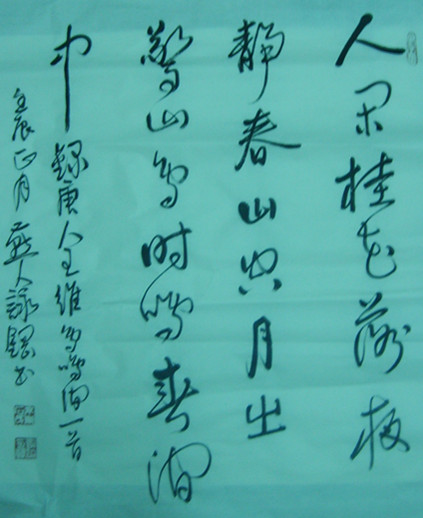 人闲桂花落夜
静春山空月出
惊山鸟时鸣春涧
中 录唐人王维鸟鸣涧一首
壬辰正月 燕人咏钢书